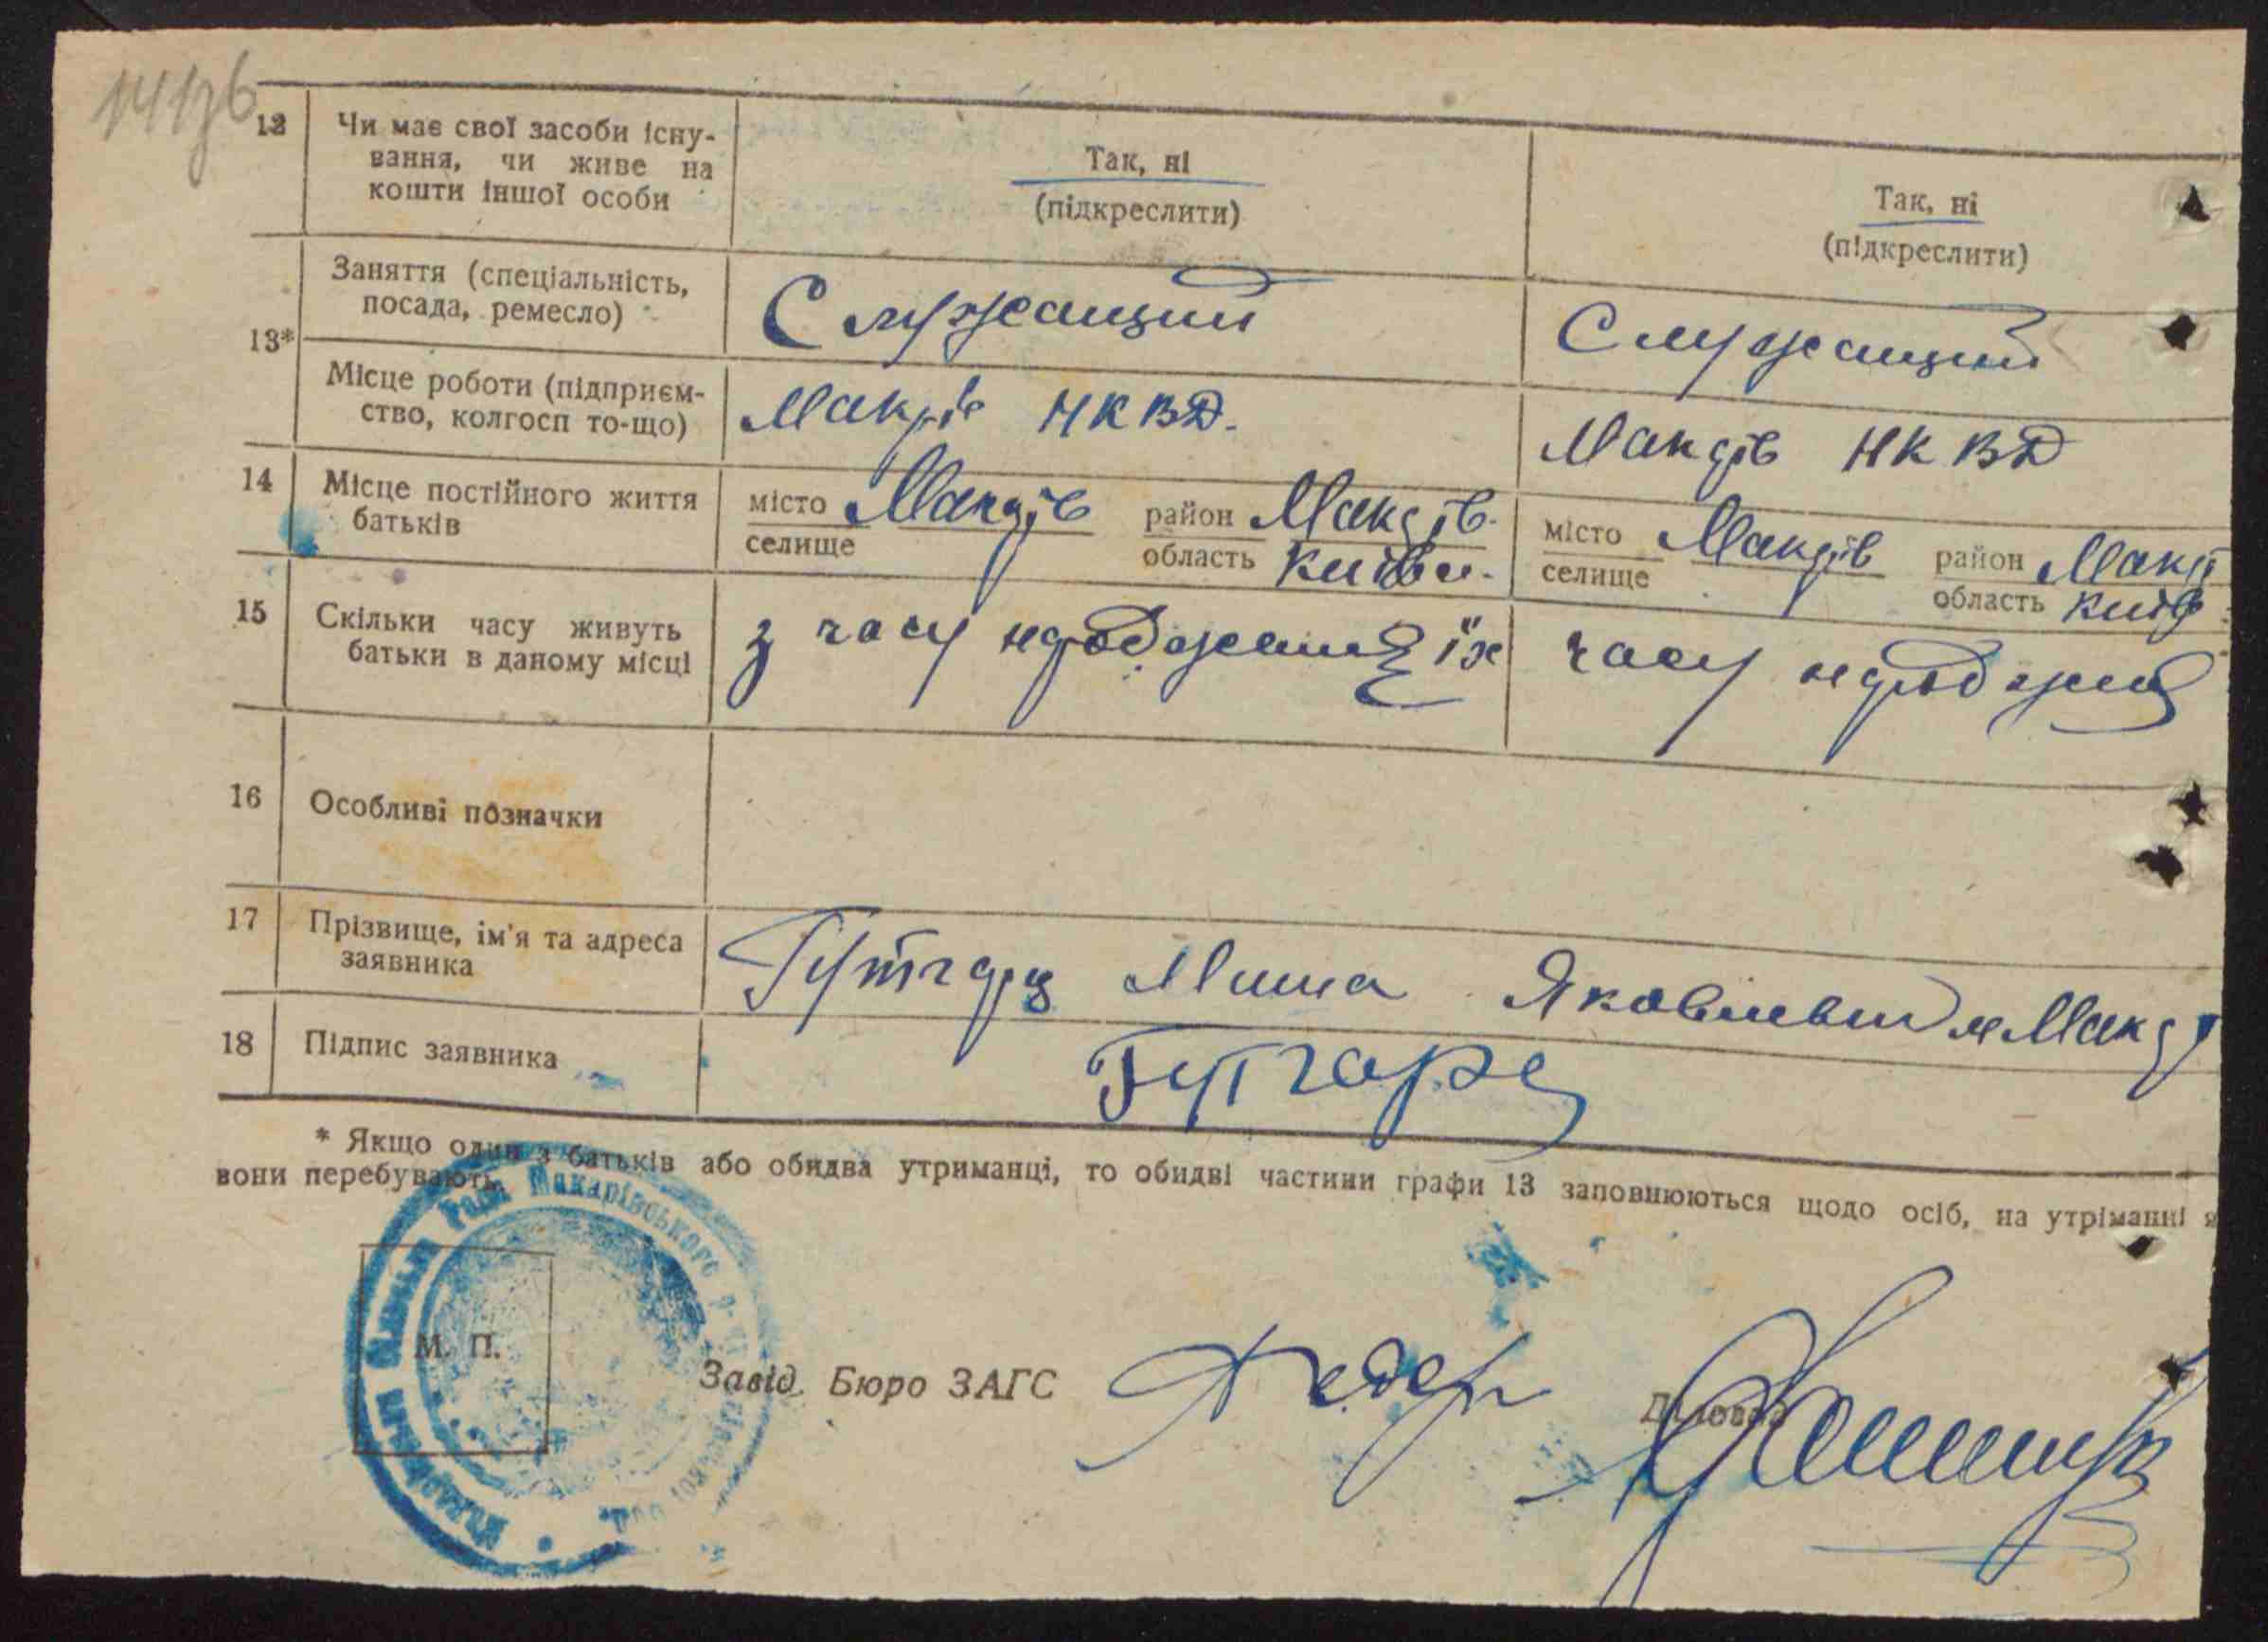 12 Чи має свої засоби існу-
вання, чи живе на
кошти іншої особи
Так, ні
(підкреслити)
Так, ні
(підкреслити)
13*
Заняття (спеціальність,
посада, ремесло)
Служащий
Служащий
Місце роботи (підприєм-
ство, колгосп то-що)
Макрів НКВД.
Макрів НКВД
14 Місце постійного життя
батьків
місто Макрів район Макрів.
селище область Київ
місто Макрів район Мак
селище область Київ
15 Скільки часу живуть
батьки в даному місці
з часу їх
часу
16 Особливі позначки
17 Прізвище, ім'я та адреса
заявника
Гутгарц Миша Яковлевич м Мака
18 Підпис заявника
Гутгарц
* Якщо один з батьків або обидва утриманці, то обидві частини графи 13 заповнюються щодо осіб, на утріманні я
вони перебувають.
Рада Макарівського р-
М. П.
Завід. Бюро ЗАГС
Діловод